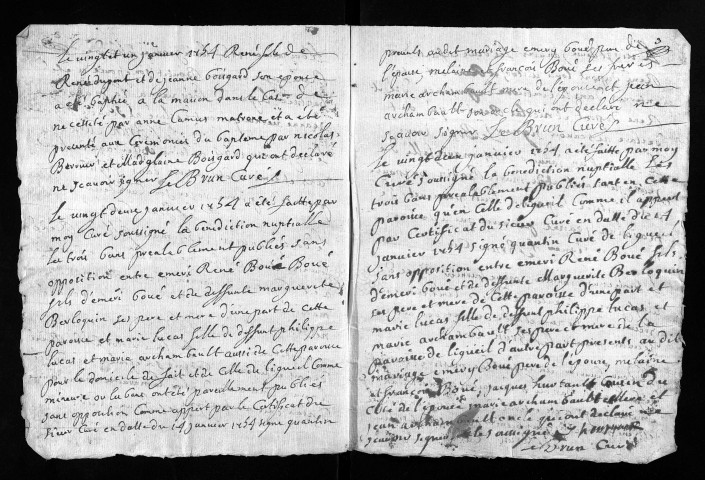 Le vingt et un janvier 1754 René fils de
René dugont et de jeanne bougard son epouce
a eté baptisé a la maison dans le cas de
necessité par anne Camus matrone et a eté
presenté aux Ceremonies du baptesme par nicolas
Berruer et Madelaine Bougard qui ont declaré
ne scavoir signer Le Brun Curé
Le vingt deux janvier 1754 a été faitte par
moy Curé soussigné la benediction nuptialle
les trois bans prealablement publiés sans
opposition entre emeri René Boué Boué
fils d'émeri boué et de deffunte marguerite
Berloquin ses pere et mere d'une part de cette
paroisse et marie lucas fille de deffunt philippe
lucas et marie archambault aussi de Cette paroisse
pour le domicile de fait et de Celle de ligueil Comme
mineure ou les bans ont été pareillement publiés
sans opposition Comme appert par le Certificat du
sieur Curé en datte du 14 janvier 1754 signé quantin
presents audit mariage emery boué pere de
l'epoux melaine et françois Boué ses freres
marie archambault mere de l'epouse et jean
archambault son oncle qui ont declaré ne
scavoir signer Le Brun Curé
Le vingt deux janvier 1754 a eté faitte par moy
Curé soussigné la benediction nuptialle les
trois bans prealablement publiés tant en Cette
paroisse qu'en Celle de ligueil Comme il appert
par Certificat du sieur Curé en datte du 14
janvier 1754 signé quantin Curé de ligueil
sans opposition entre emeri René Boué fils
d'émeri boué et de deffunte Marguerite Berloquin
ses pere et mere de Cette paroisse d'une part et
marie lucas fille de deffunt philippe lucas et
marie archambault ses pere et mere de la
paroisse de ligueil d'autre part presents au dit
mariage emery Boué pere de l'epoux melaine
et françois Boué, jacques hurtault Cousin du
Coté de l'epouse marie archambault mere et
jean archambault oncle qui ont declaré ne
scavoir signer
Le Brun Curé